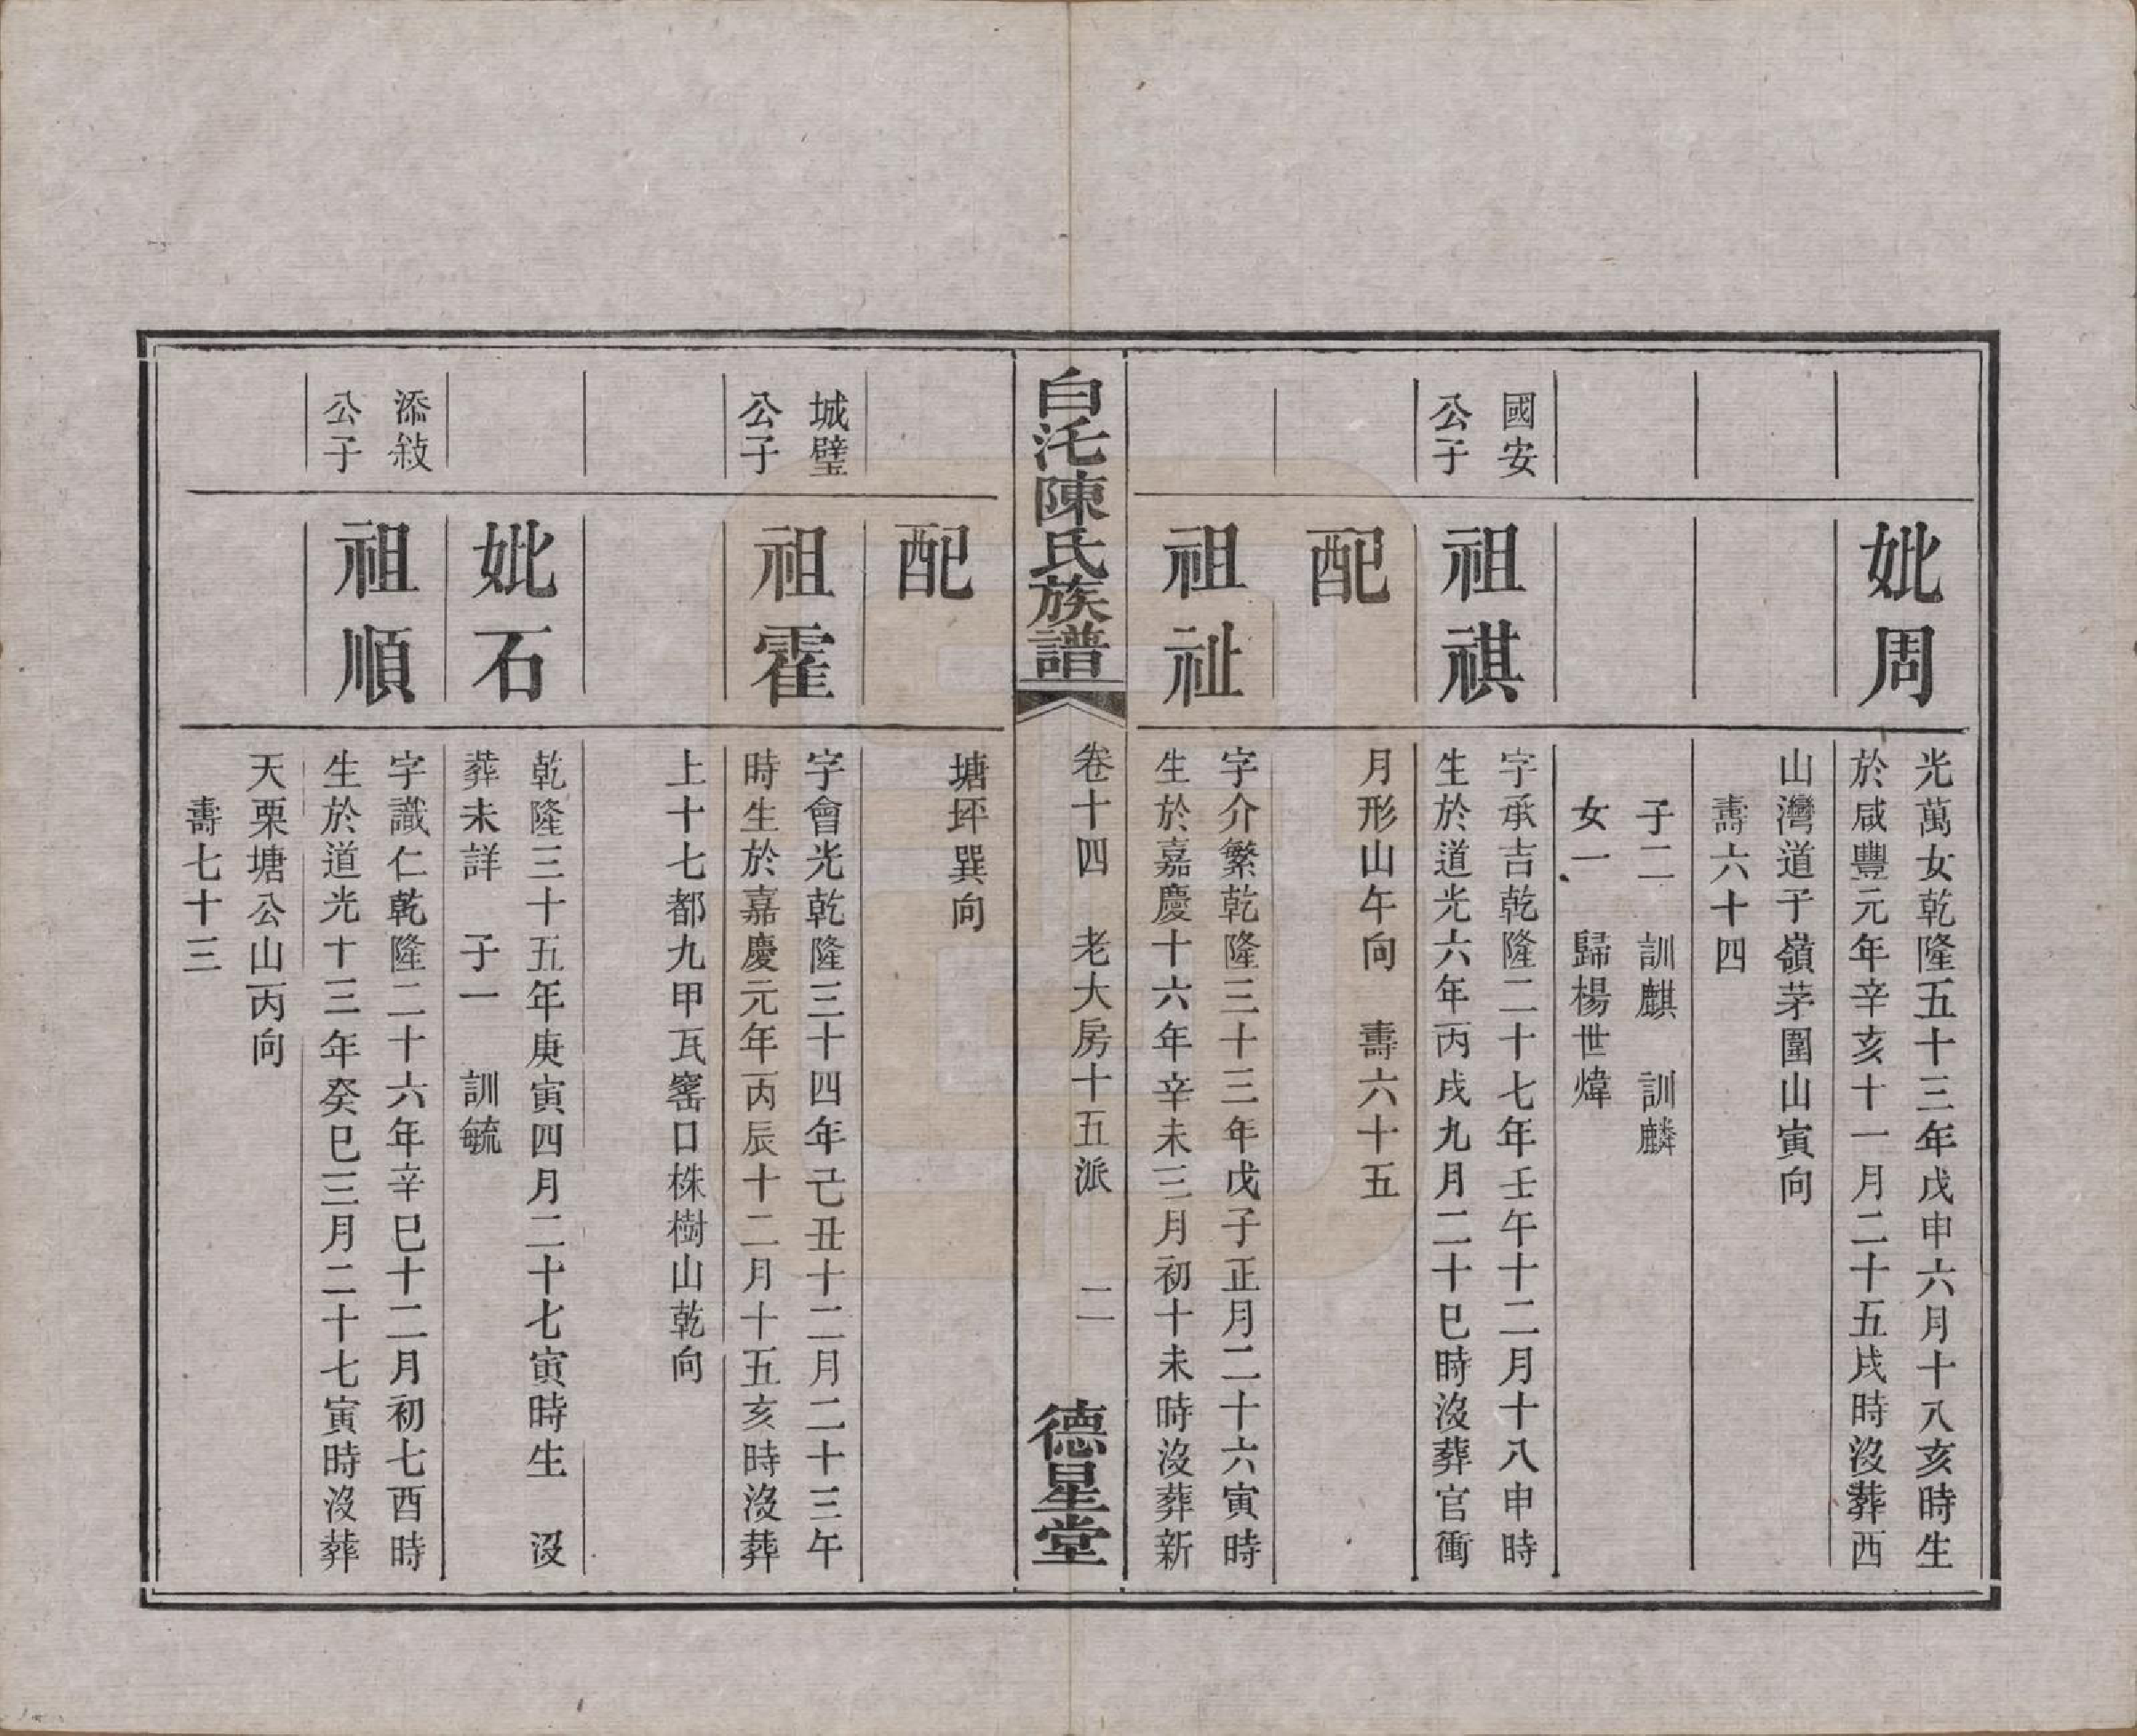 妣周
光萬女乾隆五十三年戊申六月十八亥時生
於咸豐元年辛亥十一月二十五戌時沒葬西
山灣道子嶺茅圍山寅向
壽六十四
子二 訓麒 訓麟
女一 歸楊世煒
國安
公子
祖祺
字承吉乾隆二十七年壬午十二月十八申時
生於道光六年丙戌九月二十巳時沒葬官衝
配
月形山午向 壽六十五
祖祉
字介繁乾隆三十三年戊子正月二十六寅時
生於嘉慶十六年辛未三月初十未時沒葬新
白沱陳氏族譜
卷十四 老大房十五派 二
德星堂
配
塘坪巽向
城璧
公子
祖霍
字會光乾隆三十四年己丑十二月二十三午
時生於嘉慶元年丙辰十二月十五亥時沒葬
上十七都九甲瓦窰口株樹山乾向
妣石
乾隆三十五年庚寅四月二十七寅時生 沒
葬未詳 子一 訓毓
添敍
公子
祖順
字識仁乾隆二十六年辛巳十二月初七酉時
生於道光十三年癸巳三月二十七寅時沒葬
天栗塘公山丙向
壽七十三